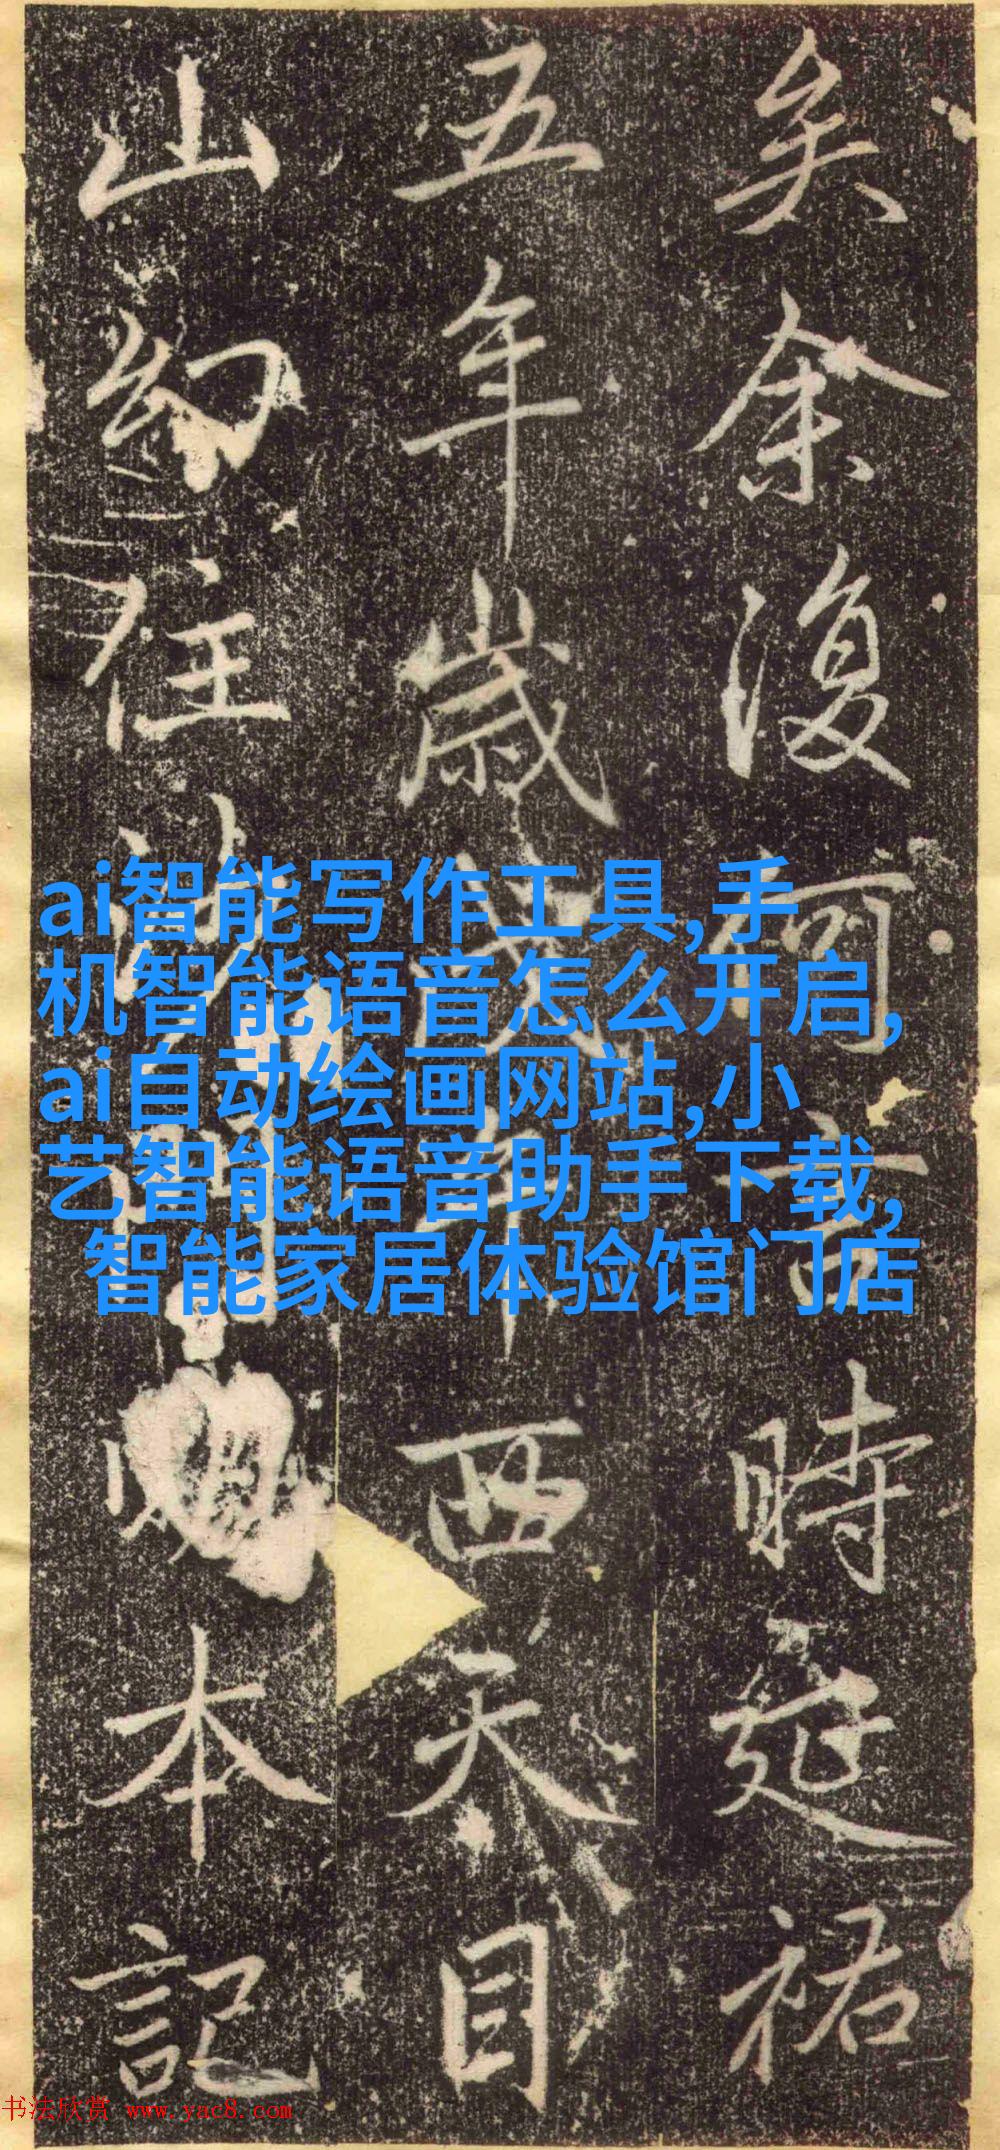 矣余復何言時延祐
五年歲戊午西天目
山幻住沙門明本記
ai智能写作工具,手
机智能语音怎么开启,
ai自动绘画网站,小
艺智能语音助手下载,
智能家居体验馆门店
书法欣赏 www.yac8.com